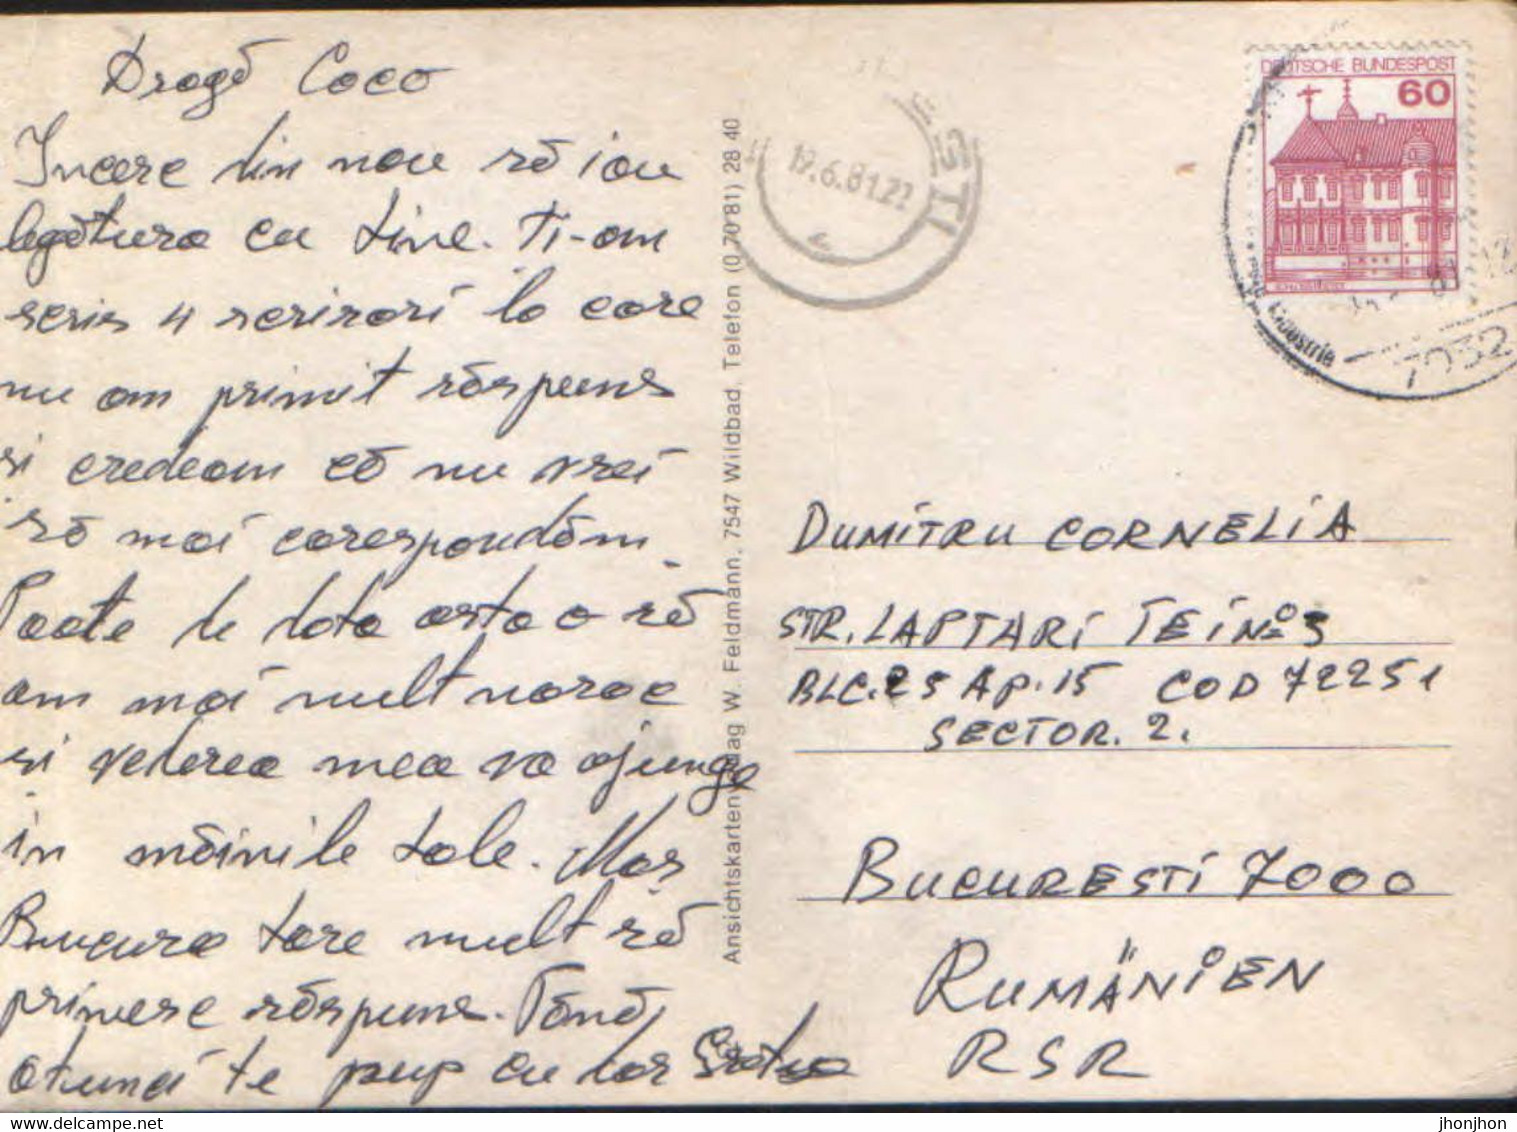 Dragă Coco
Incerc din nou să iau
legătura cu tine. Ti-am
scris 4 scrisori la care
nu am primit răspuns
si credeam că nu vrei
să mai corespondăm.
Poate de data asta o să
am mai mult noroc
si vederea mea va ajunge
in măinile tale. M-as
Bucura tare mult să
primesc răspuns. Pănă
atunci te pup cu dor
Ansichtskartenverlag W. Feldmann, 7547 Wildbad, Telefon (0 70 81) 28 40
ESTI
19.6.81.22
DEUTSCHE BUNDESPOST
60
Industrie
7032
DUMITRU CORNELIA
STR. LAPTARI TEI Nº 3
BLC. 25 AP. 15 COD 72251
SECTOR. 2.
BUCURESTI 7000
RUMÄNIEN
RSR
jhonjhon